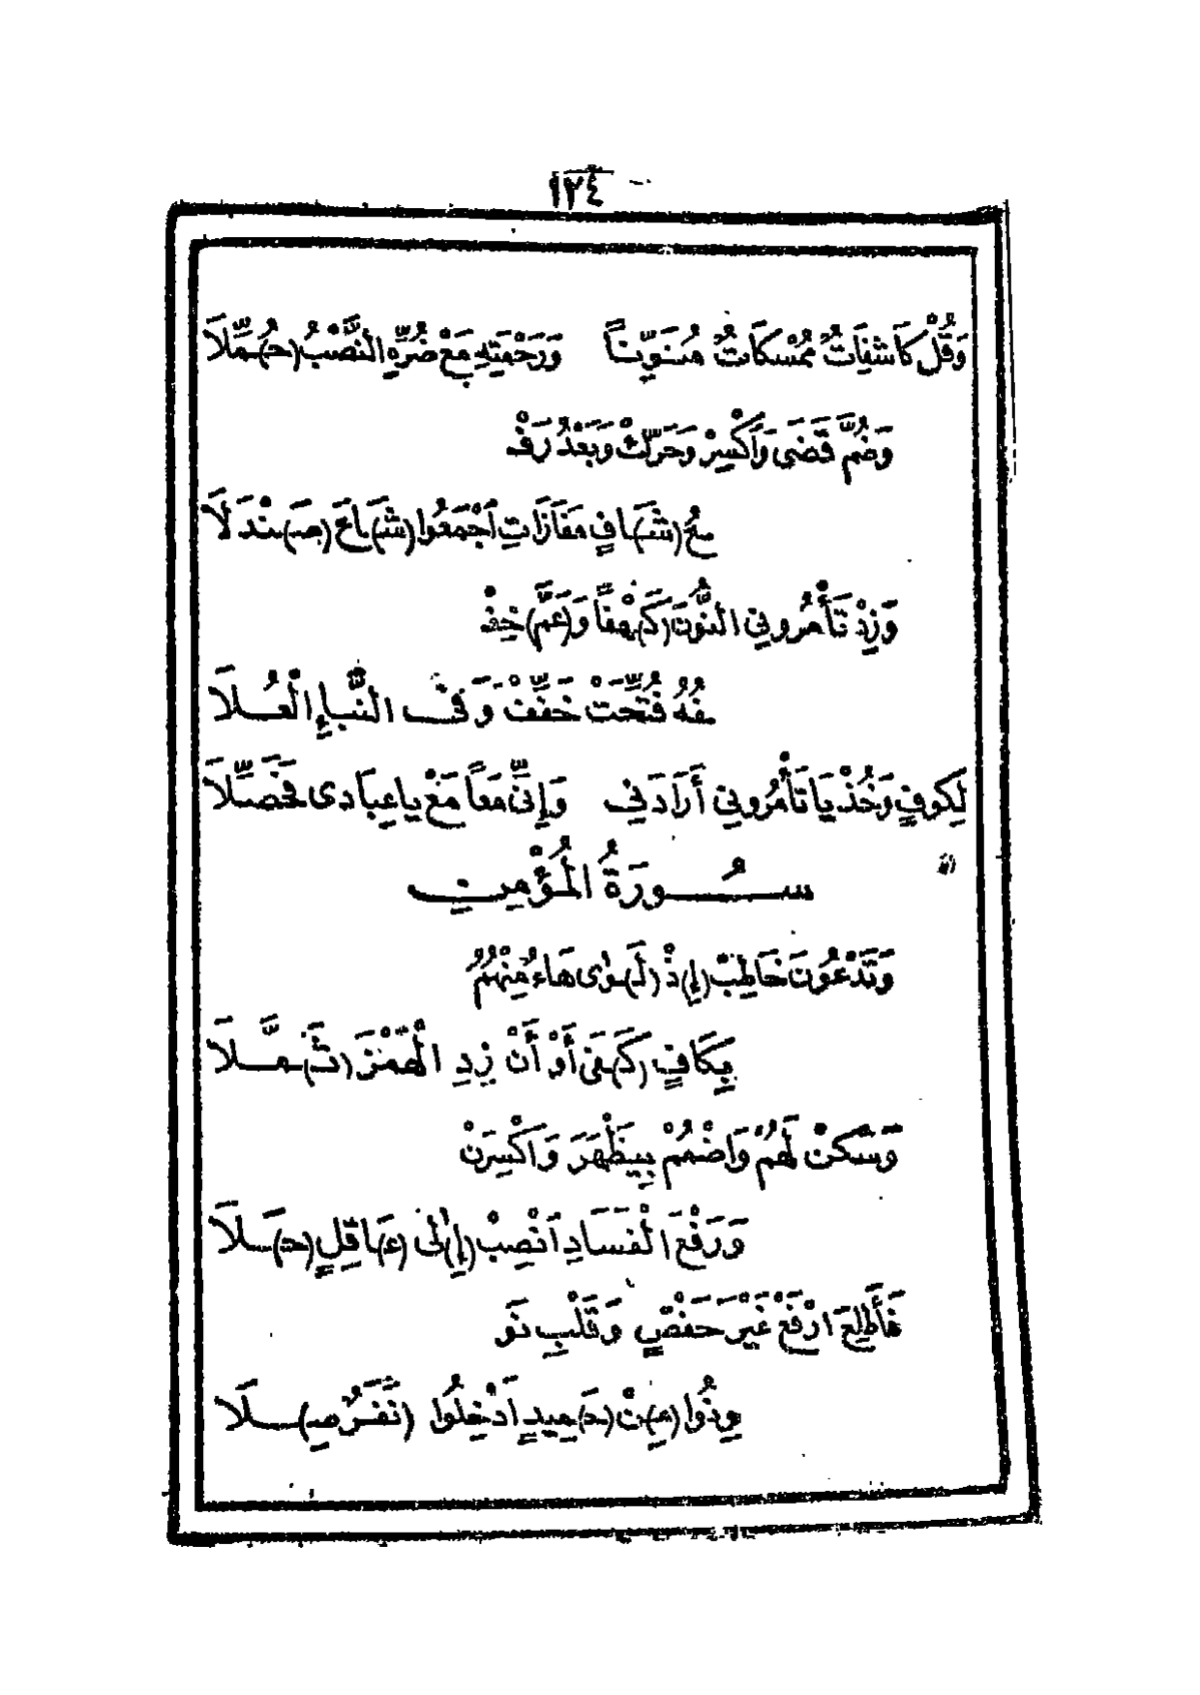 ١٢٤
وَقُلْ كَاشِفَاتٌ مُمْسِكَاتٌ مُنَوِّنًا وَرَحْمَتِهِ مَعْ ضُرِّهِ النَّصْبُ (حُ)مِّلَا
وَضُمَّ قَضَى وَاكْسِرْ وَحَرِّكْ وَبَعْدُ رَفْ
عُ (شَ)افٍ مَفَازَاتِ اجْمَعُوا (شَ)اعَ (صَ)نْدَلَا
وَزِدْ تَأْمُرُونِي النُّونَ (كَ)هْفًا وَ(عَمَّ) خِفْ
فُهُ فُتِّحَتْ خَفِّفْ وَفِي النَّبَإِ الْعُلَا
لِكُوفٍ وَخُذْ يَا تَأْمُرُونِي أَرَادَنِي وَإِنِّي مَعًا مَعْ يَا عِبَادِي فَحَصِّلَا
سُورَةُ الْمُؤْمِنِ
وَتَدْعُونَ خَاطِبْ (إِ)ذْ (لَ)وٰى هَاءُ مِنْهُمُ
بِكَافٍ (كَ)فَى أَوْ أَنْ زِدِ الْهَمْزَ (ثُ)مَّلَا
وَسَكِّنْ لَهُمْ وَاضْمُمْ بِيَظْهَرَ وَاكْسِرَنْ
وَرَفْعَ الْفَسَادِ انْصِبْ (إِ)لٰى (عَ)اقِلٍ (حَ)لَا
فَأَطَّلِعَ ارْفَعْ غَيْرَ حَفْصٍ وَقَلْبِ نَوْ
وِنُوا (مِ)نْ (حَ)مِيدٍ ادْخِلُوا (نَفَرٌ صِ)لَا